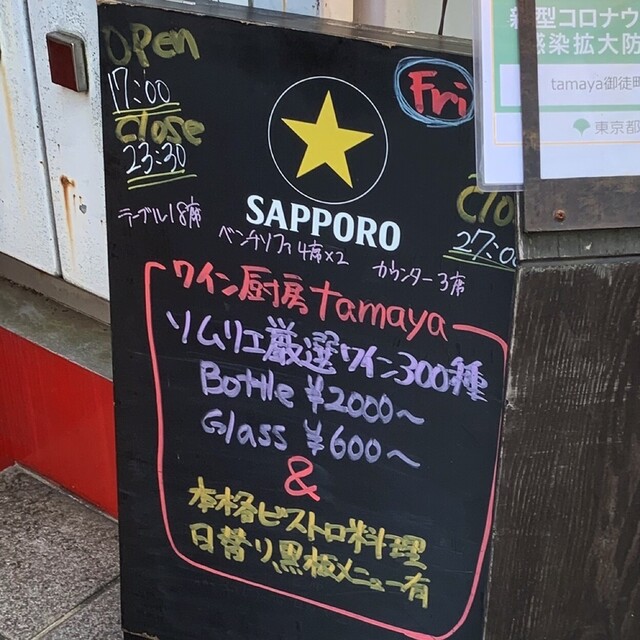 Open
17:00
Close
23:30
Fri
SAPPORO
Clo
27:00
テーブル18席
ベンチソファ4席×2
カウンター3席
ワイン厨房tamaya
ソムリエ厳選ワイン300種
Bottle ¥2000~
Glass ¥600~
&
本格ビストロ料理
日替り黒板メニュー有
新型コロナウ
感染拡大防
tamaya御徒町
東京都